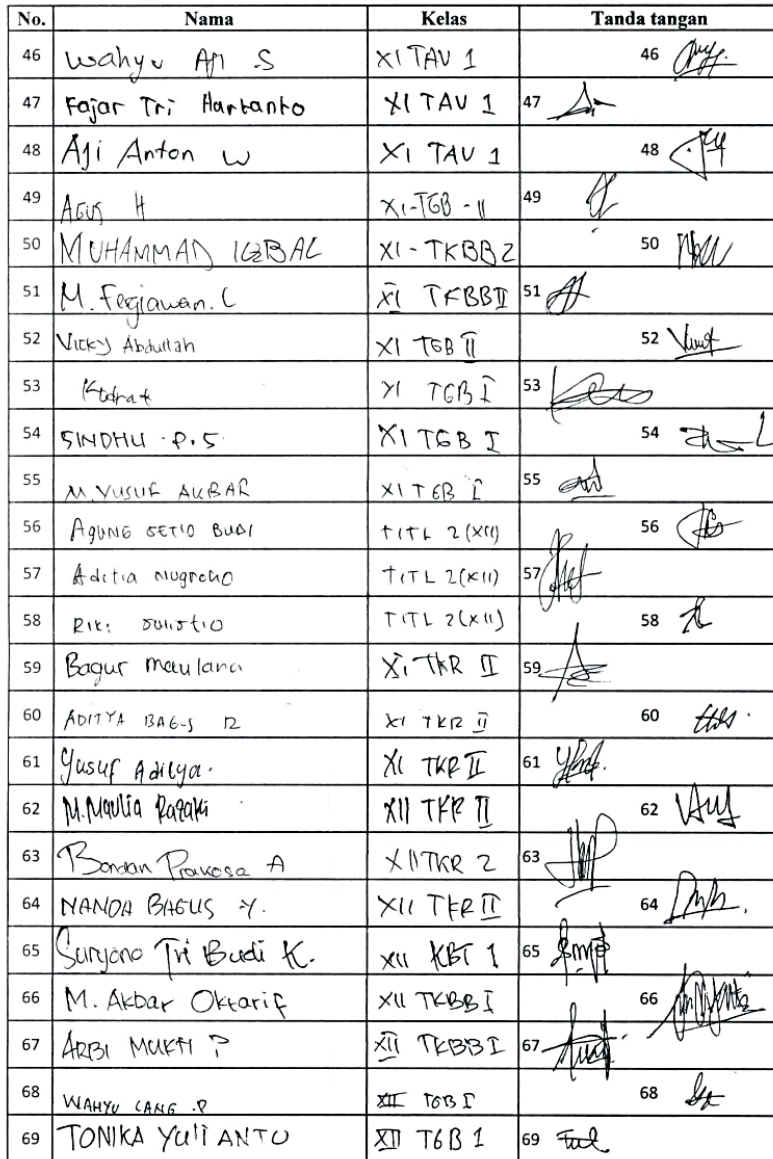 No. Nama Kelas Tanda tangan
46 Wahyu Aji S XI TAV 1 46
47 Fajar Tri Hartanto XI TAV 1 47
48 Aji Anton W XI TAV 1 48
49 AGUS H XI-TGB-II 49
50 MUHAMMAD IQBAL XI-TKBB2 50
51 M. Fegiawan. C XI TKBB II 51
52 Vicky Abdullah XI TGB II 52
53 Kodrat XI TGB I 53
54 SINDHU .P.S XI TGB I 54
55 M. YUSUF AKBAR XI TGB I 55
56 AGUNG SETIO BUDI TITL 2 (XII) 56
57 Aditia Nugroho TITL 2 (XII) 57
58 Riki SULISTIO TITL 2 (XII) 58
59 Bagus Maulana XI TKR II 59
60 ADITYA BAGUS R XI TKR II 60
61 Yusuf Aditya. XI TKR II 61
62 M. Maulia Razaki XII TKR II 62
63 Bondan Prakosa A XII TKR 2 63
64 NANDA BAGUS Y. XII TKR II 64
65 Suryono Tri Budi K. XII KBT 1 65
66 M. Akbar Oktarif XII TKBB I 66
67 ARBI MUKTI P XII TKBB I 67
68 WAHYU LANG .P XII TGB I 68
69 TONIKA YULIANTO XII TGB 1 69